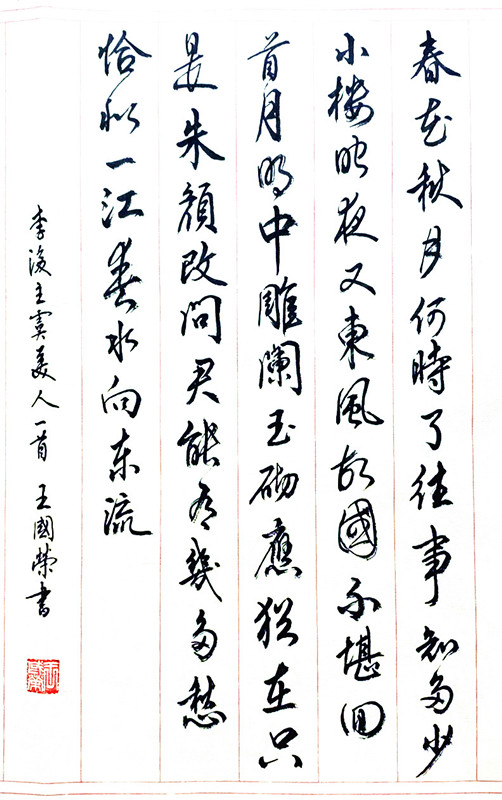 春花秋月何時了往事知多少
小楼昨夜又東風故國不堪回
首月明中雕闌玉砌應猶在只
是朱顏改問君能有幾多愁
恰似一江春水向东流
李後主虞美人一首 王國榮書